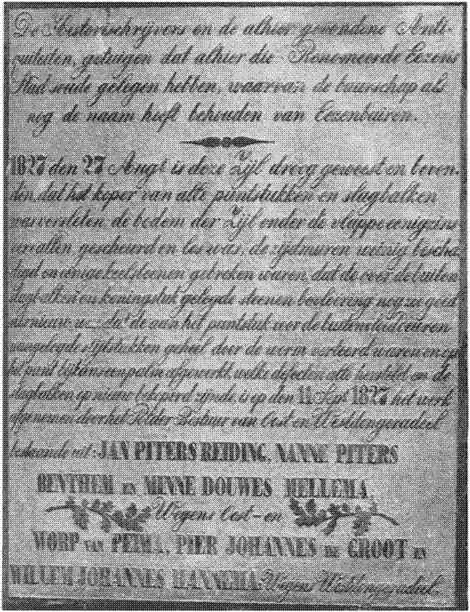 De Historischrijvers en de alhier gevondene Anti-
cuiteiten, getuigen dat alhier die Renomeerde Eezens
Stad soude gelegen hebben, waarvan de buurschap als
nog de naam heeft behouden van Eezenbuiren.
1827 den 27 Augt is deze Zijl droog geweest en beven-
den, dat het koper van alle puntstukken en slagbalken
was versleten, de bodem der Zijl onder de vloppe eenigzins
vervallen gescheurd en los was, de zijdmuren weinig bescha
digd en eenige keelsteenen gebroken waren, dat de over de buiten
slagbalken en koningstuk gelegde steenen bevloering nog zo goed
als nieuw was, dat de aan het puntstuk voor de buitenvloeddeuren
aangelegde slijtstukken geheel door de worm verteerd waren en op
het punt bijkans een palm afgewerkt, welke defecten alle hersteld en de
slagbalken op nieuw bekoperd zijnde, is op den 11 Sept 1827 het werk
afgenomen door het Polder Bestuur van Oost en Westdongeradeel
bestaande uit: JAN PITERS REIDING, NANNE PITERS
BENTHEM EN MINNE DOUWES HELLEMA,
Wegens Oost- en
WORP VAN PEIMA, PIER JOHANNES DE GROOT EN
WILLEM JOHANNES HANNEMA: Wegens Westdongeradeel